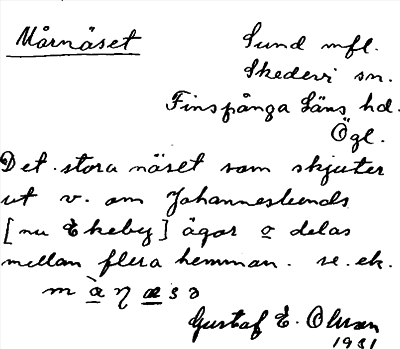 Mårnäset
Sund mfl.
Skedevi sn.
Finspånga läns hd.
Ögl.
Det stora näset som skjuter
ut v. om Johanneslunds
[nu Ekeby] ägor o delas
mellan flera hemman. se. ek.
Gustaf E. Olsson
1931